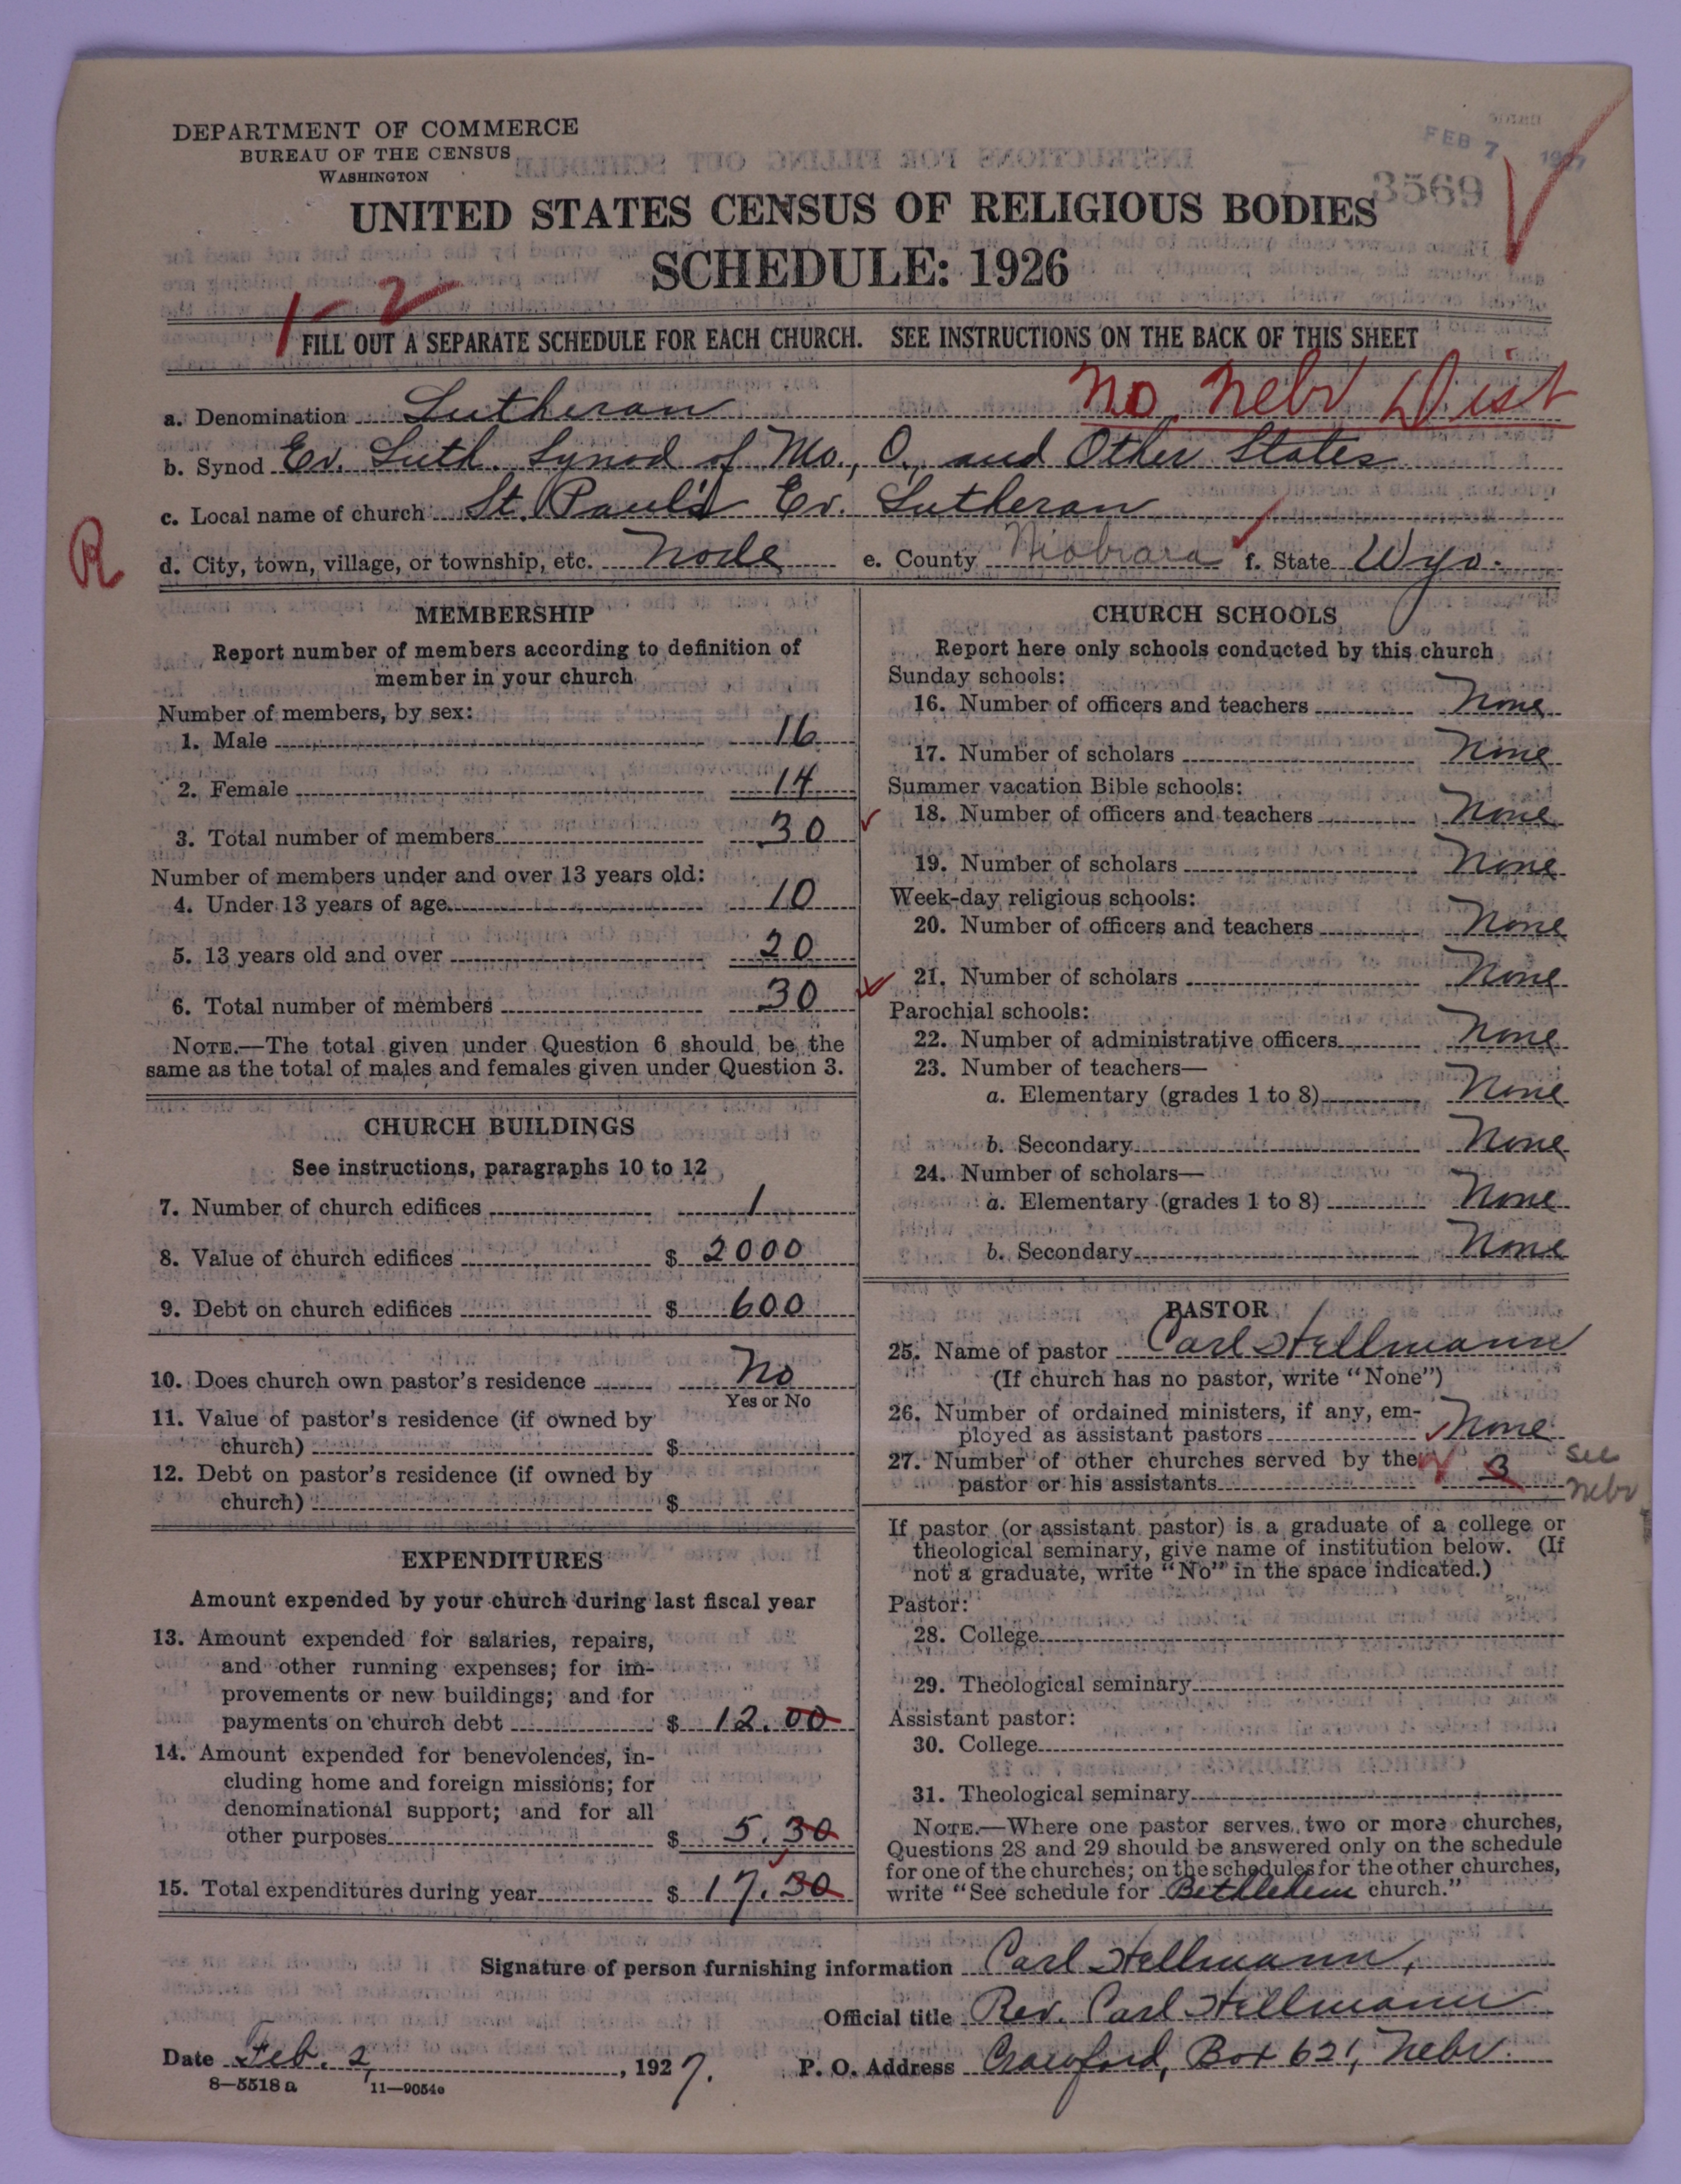 DEPARTMENT OF COMMERCE
BUREAU OF THE CENSUS
WASHINGTON
FEB 7 1927
3569
UNITED STATES CENSUS OF RELIGIOUS BODIES
SCHEDULE: 1926
1-2
FILL OUT A SEPARATE SCHEDULE FOR EACH CHURCH. SEE INSTRUCTIONS ON THE BACK OF THIS SHEET
No. Nebr Dist
a. Denomination Lutheran
b. Synod Ev. Luth. Synod of Mo., O., and Other States
c. Local name of church St. Paul's Ev. Lutheran
R
d. City, town, village, or township, etc. Node e. County Niobrara f. State Wyo.
MEMBERSHIP
Report number of members according to definition of
member in your church
Number of members, by sex:
1. Male 16
2. Female 14
3. Total number of members 30
Number of members under and over 13 years old:
4. Under 13 years of age 10
5. 13 years old and over 20
6. Total number of members 30
NOTE.—The total given under Question 6 should be the
same as the total of males and females given under Question 3.
CHURCH BUILDINGS
See instructions, paragraphs 10 to 12
7. Number of church edifices 1
8. Value of church edifices $ 2000
9. Debt on church edifices $ 600
10. Does church own pastor's residence No
Yes or No
11. Value of pastor's residence (if owned by
church) $
12. Debt on pastor's residence (if owned by
church) $
EXPENDITURES
Amount expended by your church during last fiscal year
13. Amount expended for salaries, repairs,
and other running expenses; for im-
provements or new buildings; and for
payments on church debt $ 12.00
14. Amount expended for benevolences, in-
cluding home and foreign missions; for
denominational support; and for all
other purposes $ 5.30
15. Total expenditures during year $ 17.30
CHURCH SCHOOLS
Report here only schools conducted by this church
Sunday schools:
16. Number of officers and teachers None
17. Number of scholars None
Summer vacation Bible schools:
18. Number of officers and teachers None
19. Number of scholars None
Week-day religious schools:
20. Number of officers and teachers None
21. Number of scholars None
Parochial schools:
22. Number of administrative officers None
23. Number of teachers—
a. Elementary (grades 1 to 8) None
b. Secondary None
24. Number of scholars—
a. Elementary (grades 1 to 8) None
b. Secondary None
PASTOR
25. Name of pastor Carl Hellmann
(If church has no pastor, write "None")
26. Number of ordained ministers, if any, em-
ployed as assistant pastors None
27. Number of other churches served by the
pastor or his assistants 3
see
Nebr
If pastor (or assistant pastor) is a graduate of a college or
theological seminary, give name of institution below. (If
not a graduate, write "No" in the space indicated.)
Pastor:
28. College
29. Theological seminary
Assistant pastor:
30. College
31. Theological seminary
NOTE.—Where one pastor serves two or more churches,
Questions 28 and 29 should be answered only on the schedule
for one of the churches; on the schedules for the other churches,
write "See schedule for Bethlehem church."
Signature of person furnishing information Carl Hellmann,
Official title Rev. Carl Hellmann
Date Feb. 2, 1927. P. O. Address Crawford, Box 621, Nebr.
8—5518 a 11—9054c